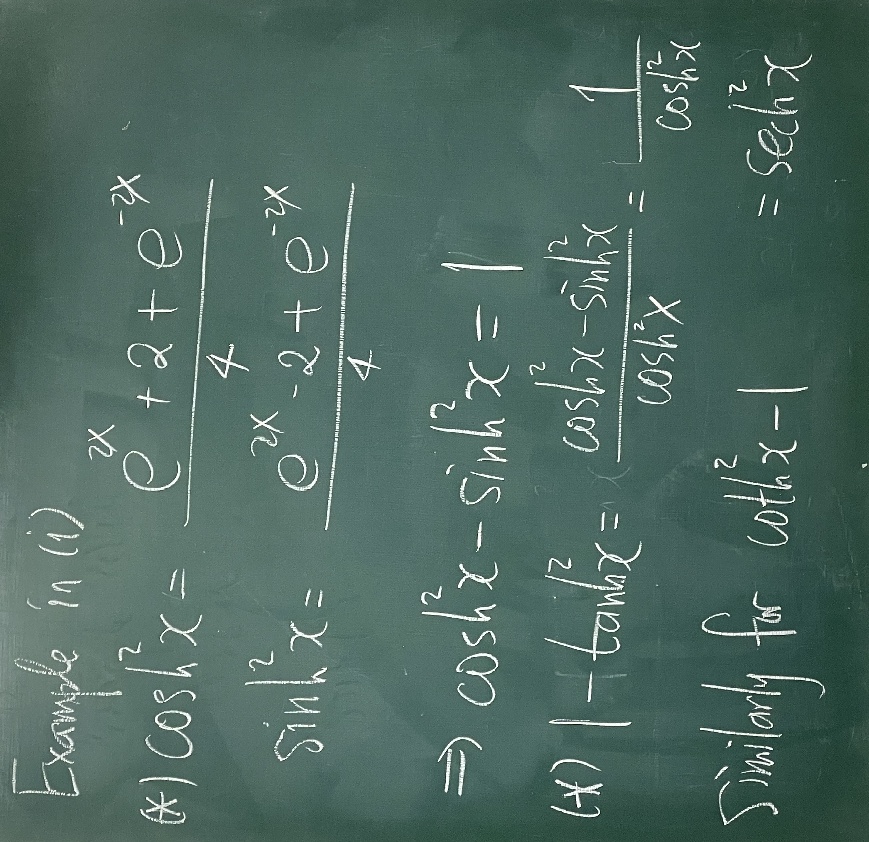 Example in (i)
(*) cosh²x = (e^{2x} + 2 + e^{-2x})/4
sinh²x = (e^{2x} - 2 + e^{-2x})/4
⇒ cosh²x - sinh²x = 1
(*) 1 - tanh²x = (cosh²x - sinh²x)/(cosh²x) = 1/(cosh²x)
Similarly for coth²x - 1 = sech²x